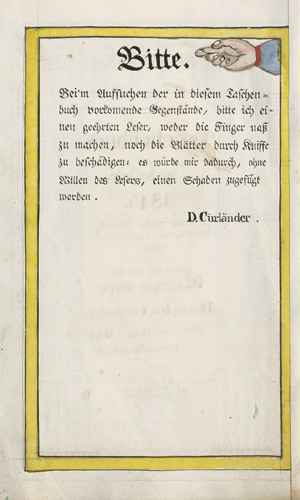 Bitte.
Bei'm Auffuchen der in diesem Taschen=
buch vorkomende Gegenstände, bitte ich ei=
nen geehrten Leser, weder die Finger naß
zu machen, noch die Blätter durch Kniffe
zu beschädigen: es würde mir dadurch, ohne
Willen des Lesers, einen Schaden zugefügt
werden.
D. Curländer.